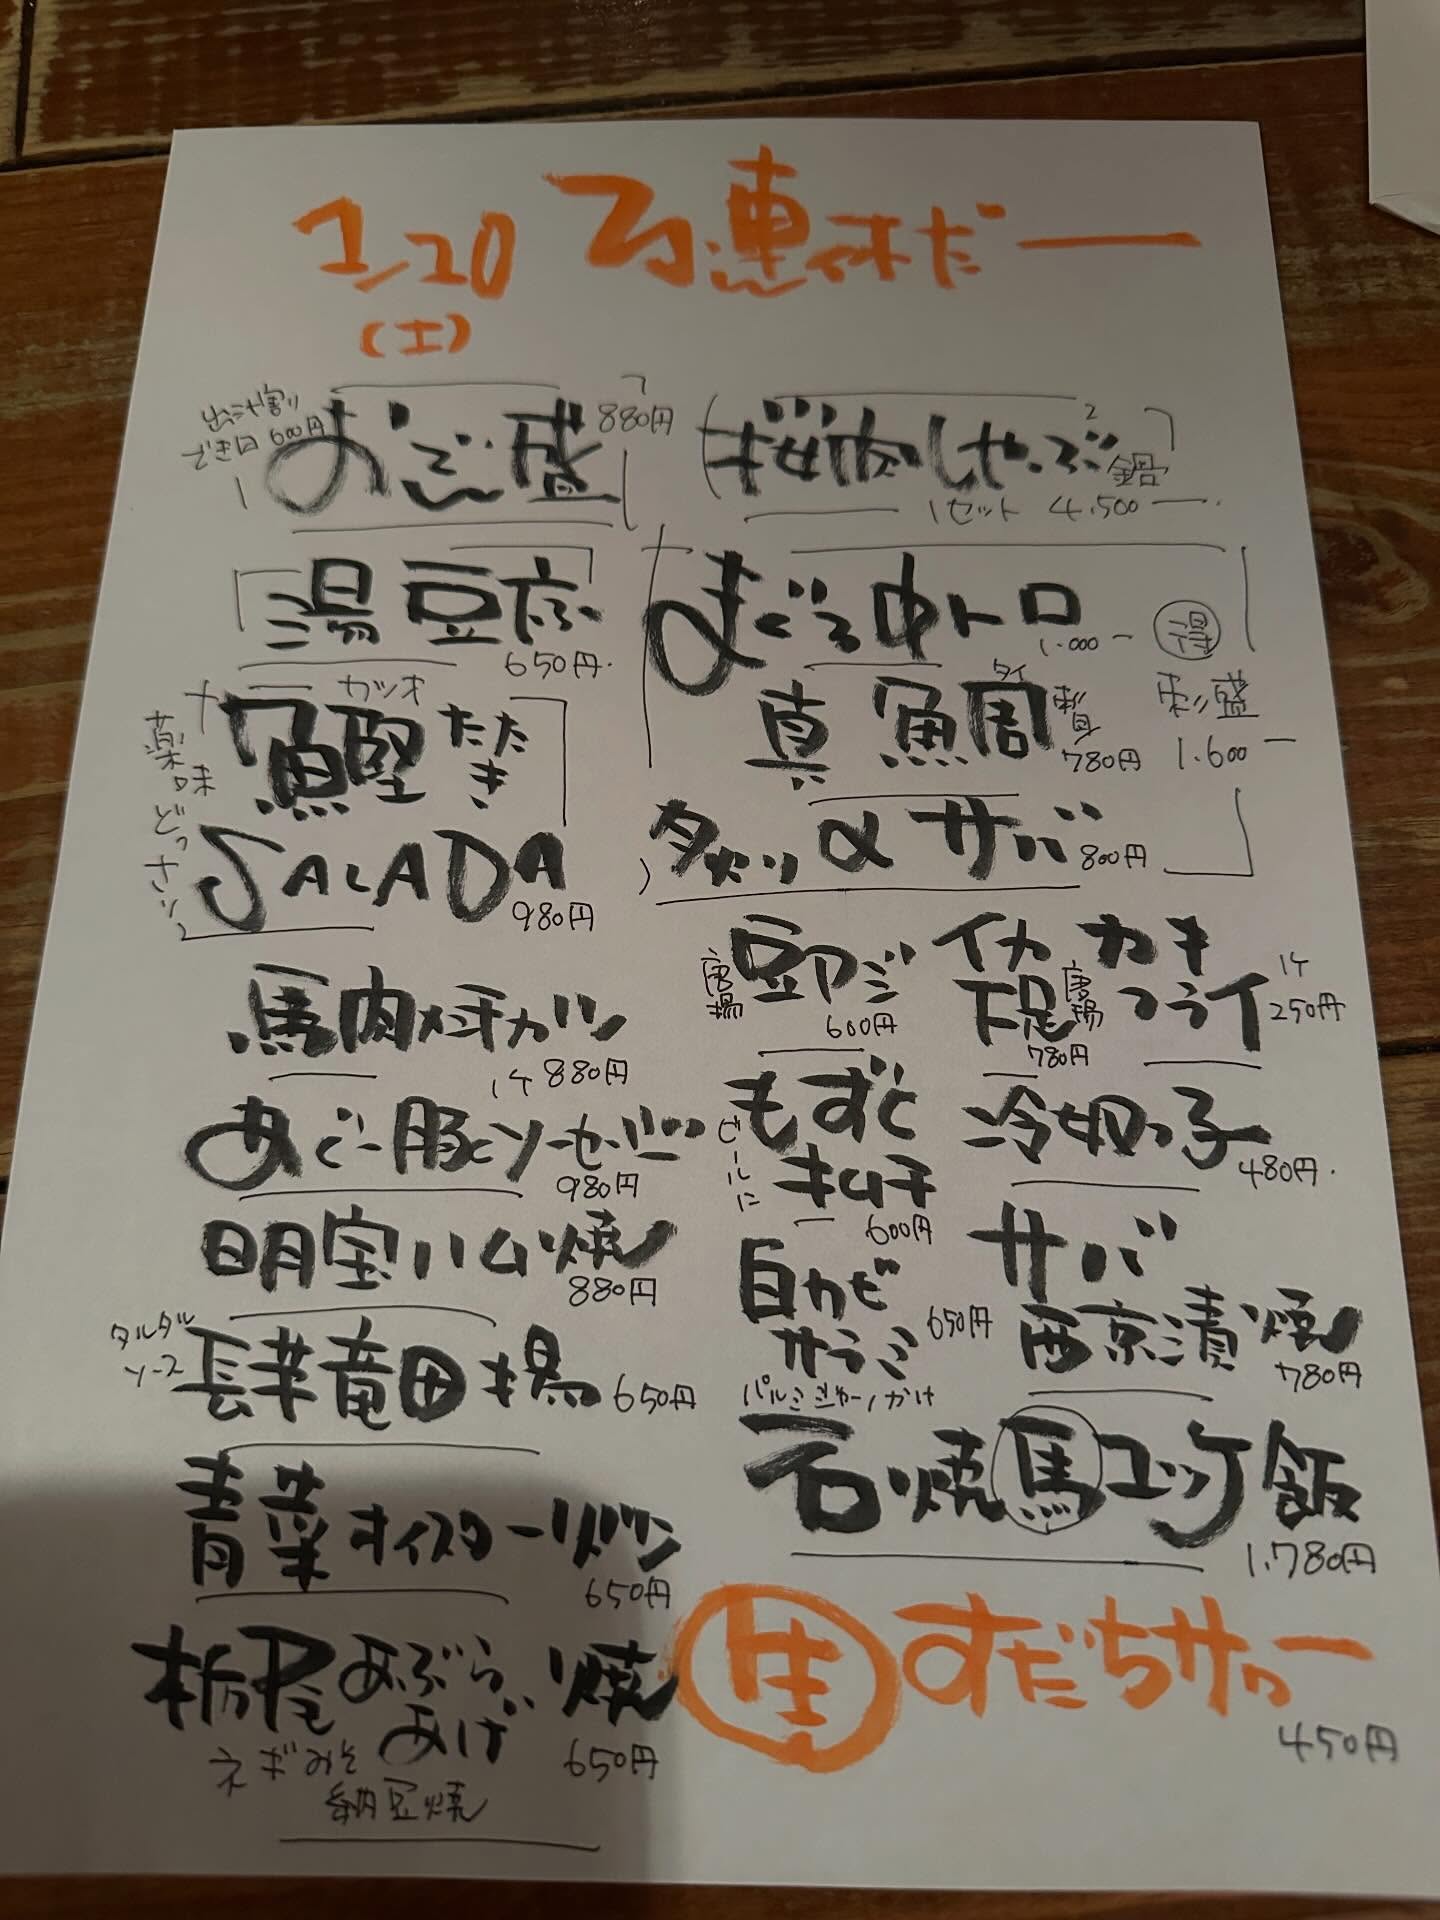 1/20
(土)
連休だー
出汁割り
でき〼 600円
おでん盛
880円
桜肉しゃぶ鍋
1セット 4,500ー
湯豆腐
650円
まぐろ中トロ
1,000ー
得
刺盛
1,600ー
カツオ
鰹たたき
薬味どっさり
SALADA
980円
タイ
真鯛
780円
〆サバ
800円
豆アジ
唐揚
600円
イカ
下足
唐揚
780円
カキ
フライ
1ケ
250円
馬肉メンチカツ
1ケ 880円
あぐー豚ソーセージ
980円
ビールに
もずく
キムチ
600円
冷奴っ子
480円
明宝ハム焼
880円
白カビ
サラミ
650円
パルミジャーノかけ
サバ
西京漬焼
780円
タルタル
ソース
長芋竜田揚
650円
石焼馬ユッケ飯
1,780円
青菜オイスターソース
650円
栃尾あぶらあげ焼
650円
ネギみそ
納豆焼
生すだちサワー
450円